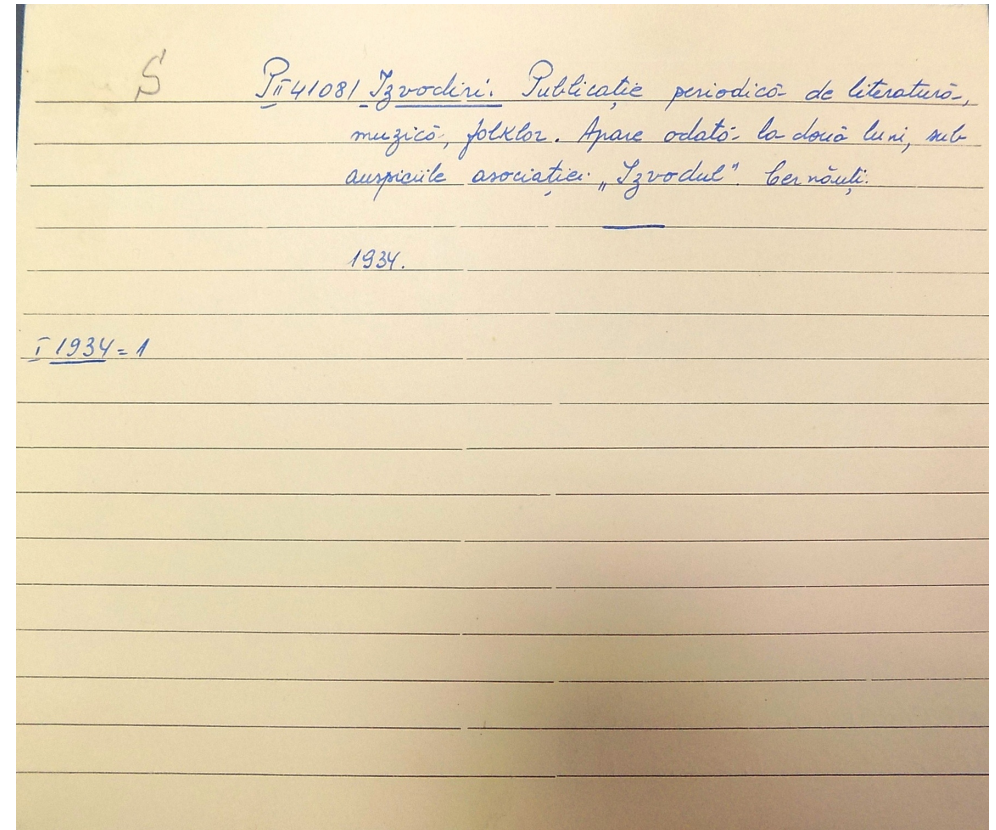 S PII 41081 Izvodiri. Publicație periodică de literatură,
muzică, folklor. Apare odată la două luni, sub
auspiciile asociației „Izvodul”. Cernăuți.
1934.
I 1934 = 1